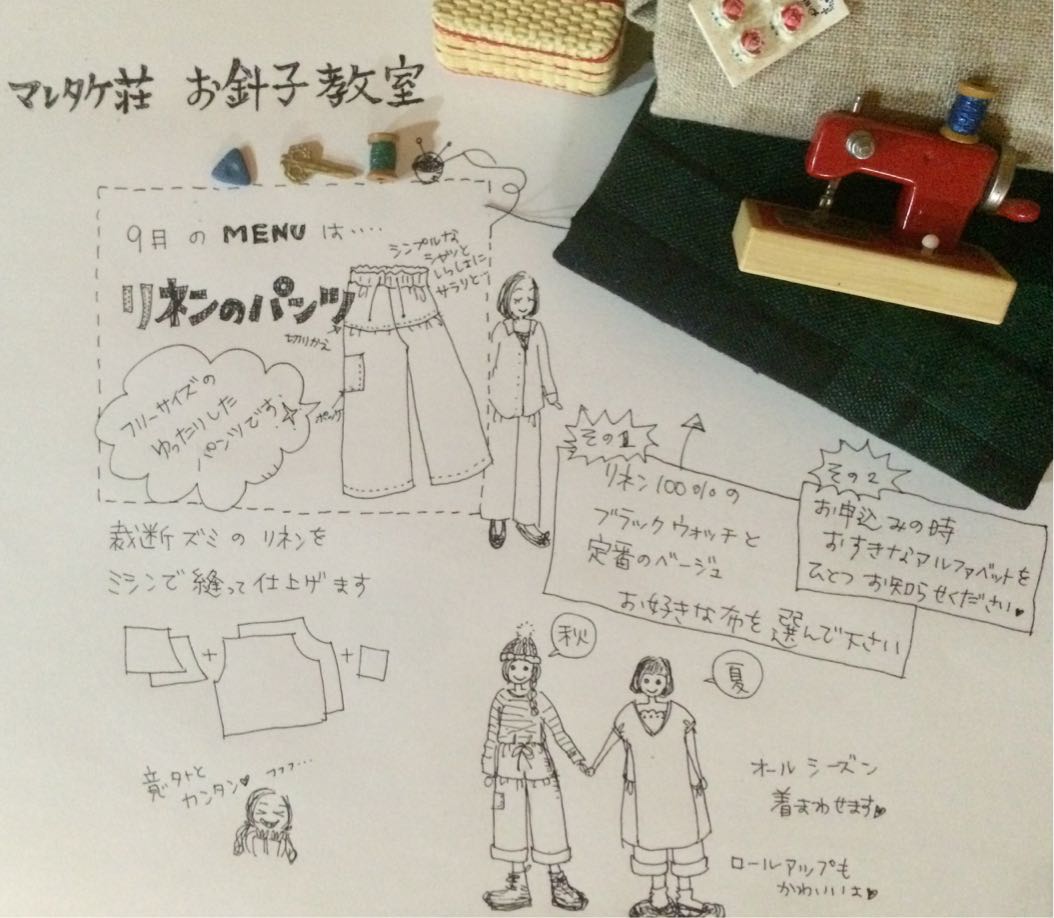 マレタケ荘 お針子教室
9月 の MENU は‥‥
リネンのパンツ
シンプルな
シャツと
いっしょに
サラリと‥
切りかえ
ポッケ
フリーサイズの
ゆったりした
パンツです
裁断ズミの リネンを
ミシンで縫って仕上げます
その1
リネン100%の
ブラックウォッチと
定番のベージュ
お好きな布を選んで下さい
その2
お申込みの時
おすきなアルファベットを
ひとつ お知らせください♥
+ +
意外と
カンタン♥
フフフ‥‥
秋
夏
オールシーズン
着まわせます♥
ロールアップも
かわいいよ♥